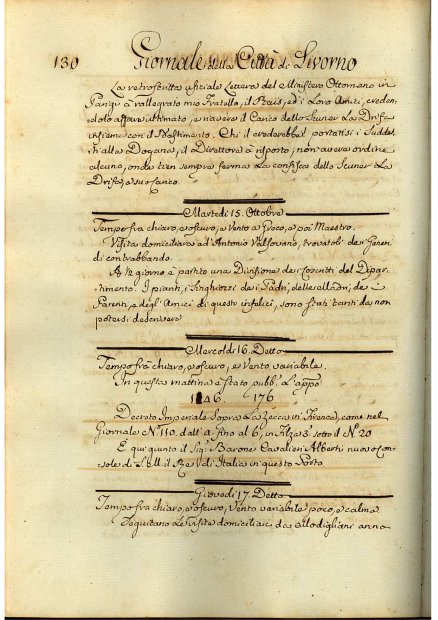 130 Giornale della Città di Livorno
La retroscritta ufiziale Lettera del Ministero Ottomano in
Parigi à rallegrato mio Fratello, il Rais, ed i Loro Amici, creden-
dolo affare ultimato, e riavere il Carico dello Scuner La Drifa
insieme con il Bastimento. Chi il crederebbe! portatisi i Suddet-
ti alla Dogana, il Direttore à risposto, non avere ordine
alcuno, onde tien sempre ferma la confisca dello Scuner La
Drifa, e suo carico.
Martedì 15. Ottobre
Tempo fra chiaro, e oscuro, e Vento a Greco, e poi Maestro.
Visita domiciliaria ad Antonio Valsovano, trovatoli dei Generi
di contrabbando.
A ½ giorno è partito una Divisione dei Coscritti del Dipar-
timento. I pianti, i Singhiozzi dei Padri, delle Madri, de
Parenti, e degl'Amici di questi infelici, sono stati tanti da non
potersi descrivere
Mercoldì 16. Detto
Tempo frà chiaro, e oscuro, e Vento variabile.
In questa mattina è stato pubb.° L'app.°
1846. 176
Decreto Imperiale Sopra La Zecca di Firenze, come nel
Giornale N.° 110. dall' a fino al 6, in Filza 3.ª sotto il N.° 20
E qui giunto il Sig.r Barone Cavalieri Alberti nuovo Con-
sole di S. M. il Re d'Italia in questo Porto.
Giovedì 17. Detto
Tempo fra chiaro, e oscuro, Vento variabile poco, e calma
Seguitano Le visite domiciliari, da Modigliani anno